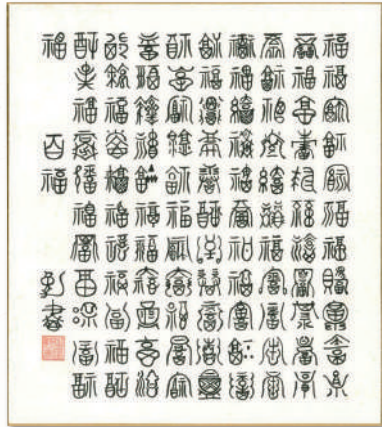 福福福福福福福福福福福
福福福福福福福福福福福
福福福福福福福福福福福
福福福福福福福福福福福
福福福福福福福福福福福
福福福福福福福福福福福
福福福福福福福福福福福
福福福福福福福福福福福
福福福福福福福福福福福
福 百福 書